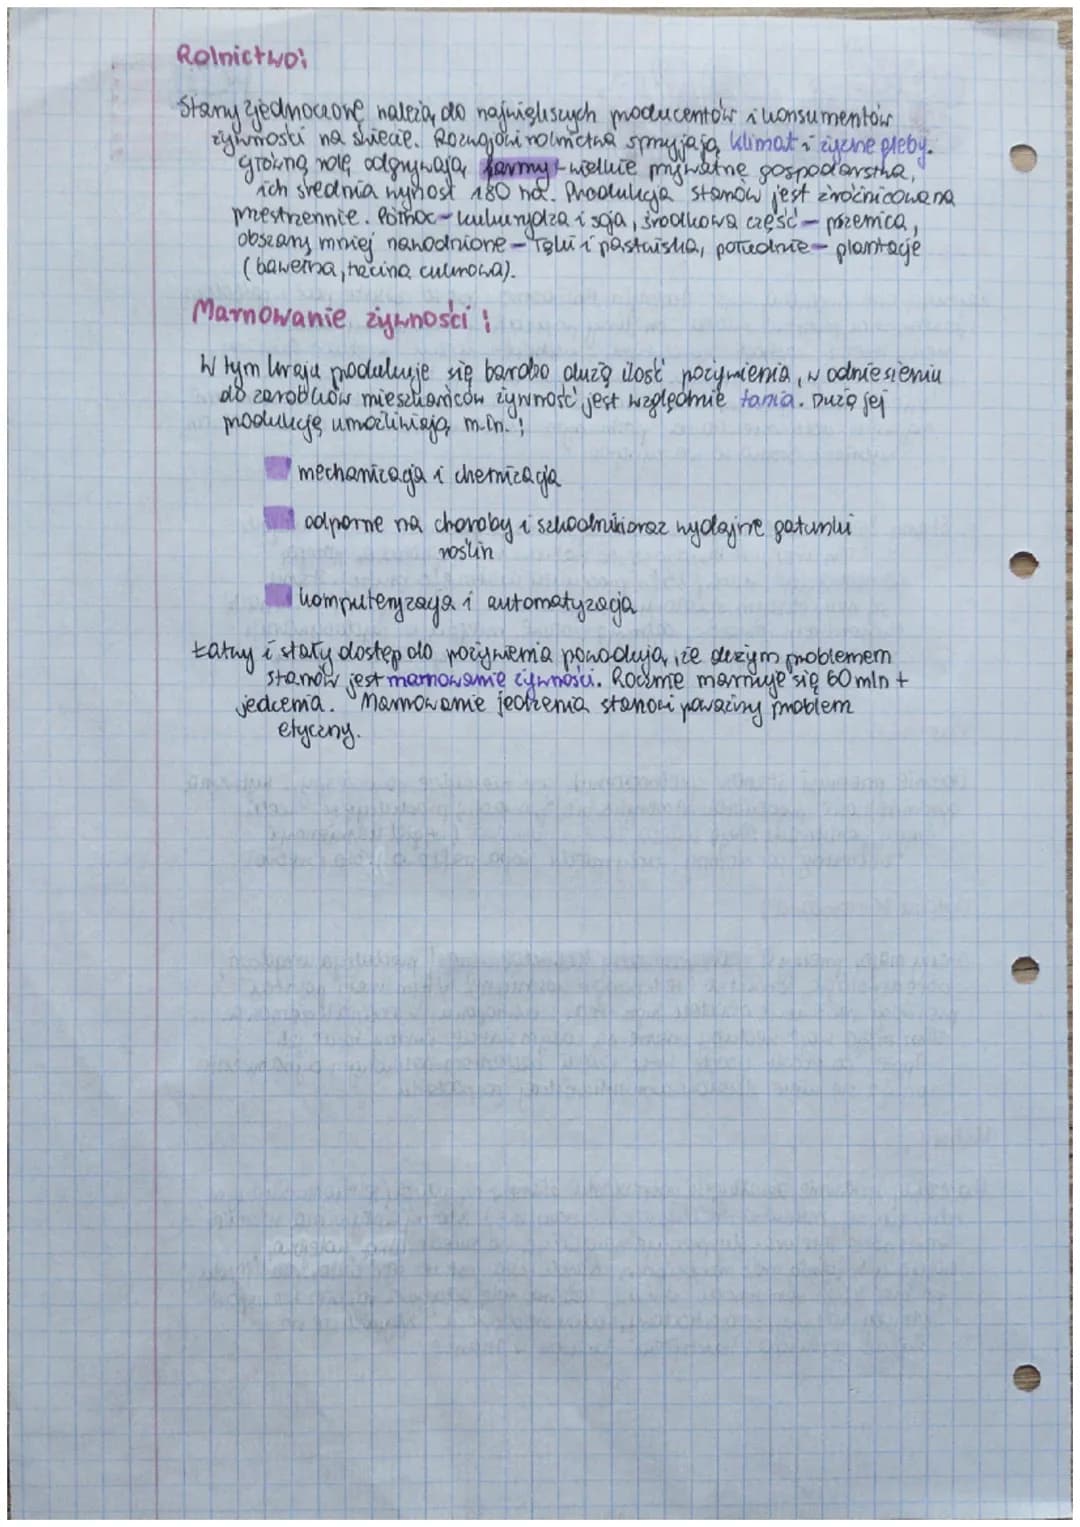 Rolnictwo:
Stany zjednoczone należą do największych producentów i konsumentów
żywności na świecie. Rozwojowi rolnictwa sprzyjają klimat i żyzne gleby.
główną rolę odgrywają farmy - wielkie prywatne gospodarstwa,
ich średnia wynosi 180 ha. Produkcja stanów jest zróżnicowana
przestrzennie. Północ - kukurydza i soja, środkowa część - pszenica,
obszary mniej nawodnione - łąki i pastwiska, południe - plantacje
(bawełna, trzcina cukrowa).
Marnowanie żywności:
W tym kraju produkuje się bardzo dużą ilość pożywienia, w odniesieniu
do zarobków mieszkańców żywność jest względnie tania. Dużą jej
produkcję umożliwiają m.in.:
mechanizacja i chemizacja
odporne na choroby i szkodniki oraz wydajne gatunki
roślin
komputeryzacja i automatyzacja
Łatwy i stały dostęp do pożywienia powoduje, że dużym problemem
stanów jest marnowanie żywności. Rocznie marnuje się 60 mln t
jedzenia. Marnowanie jedzenia stanowi poważny problem
etyczny.